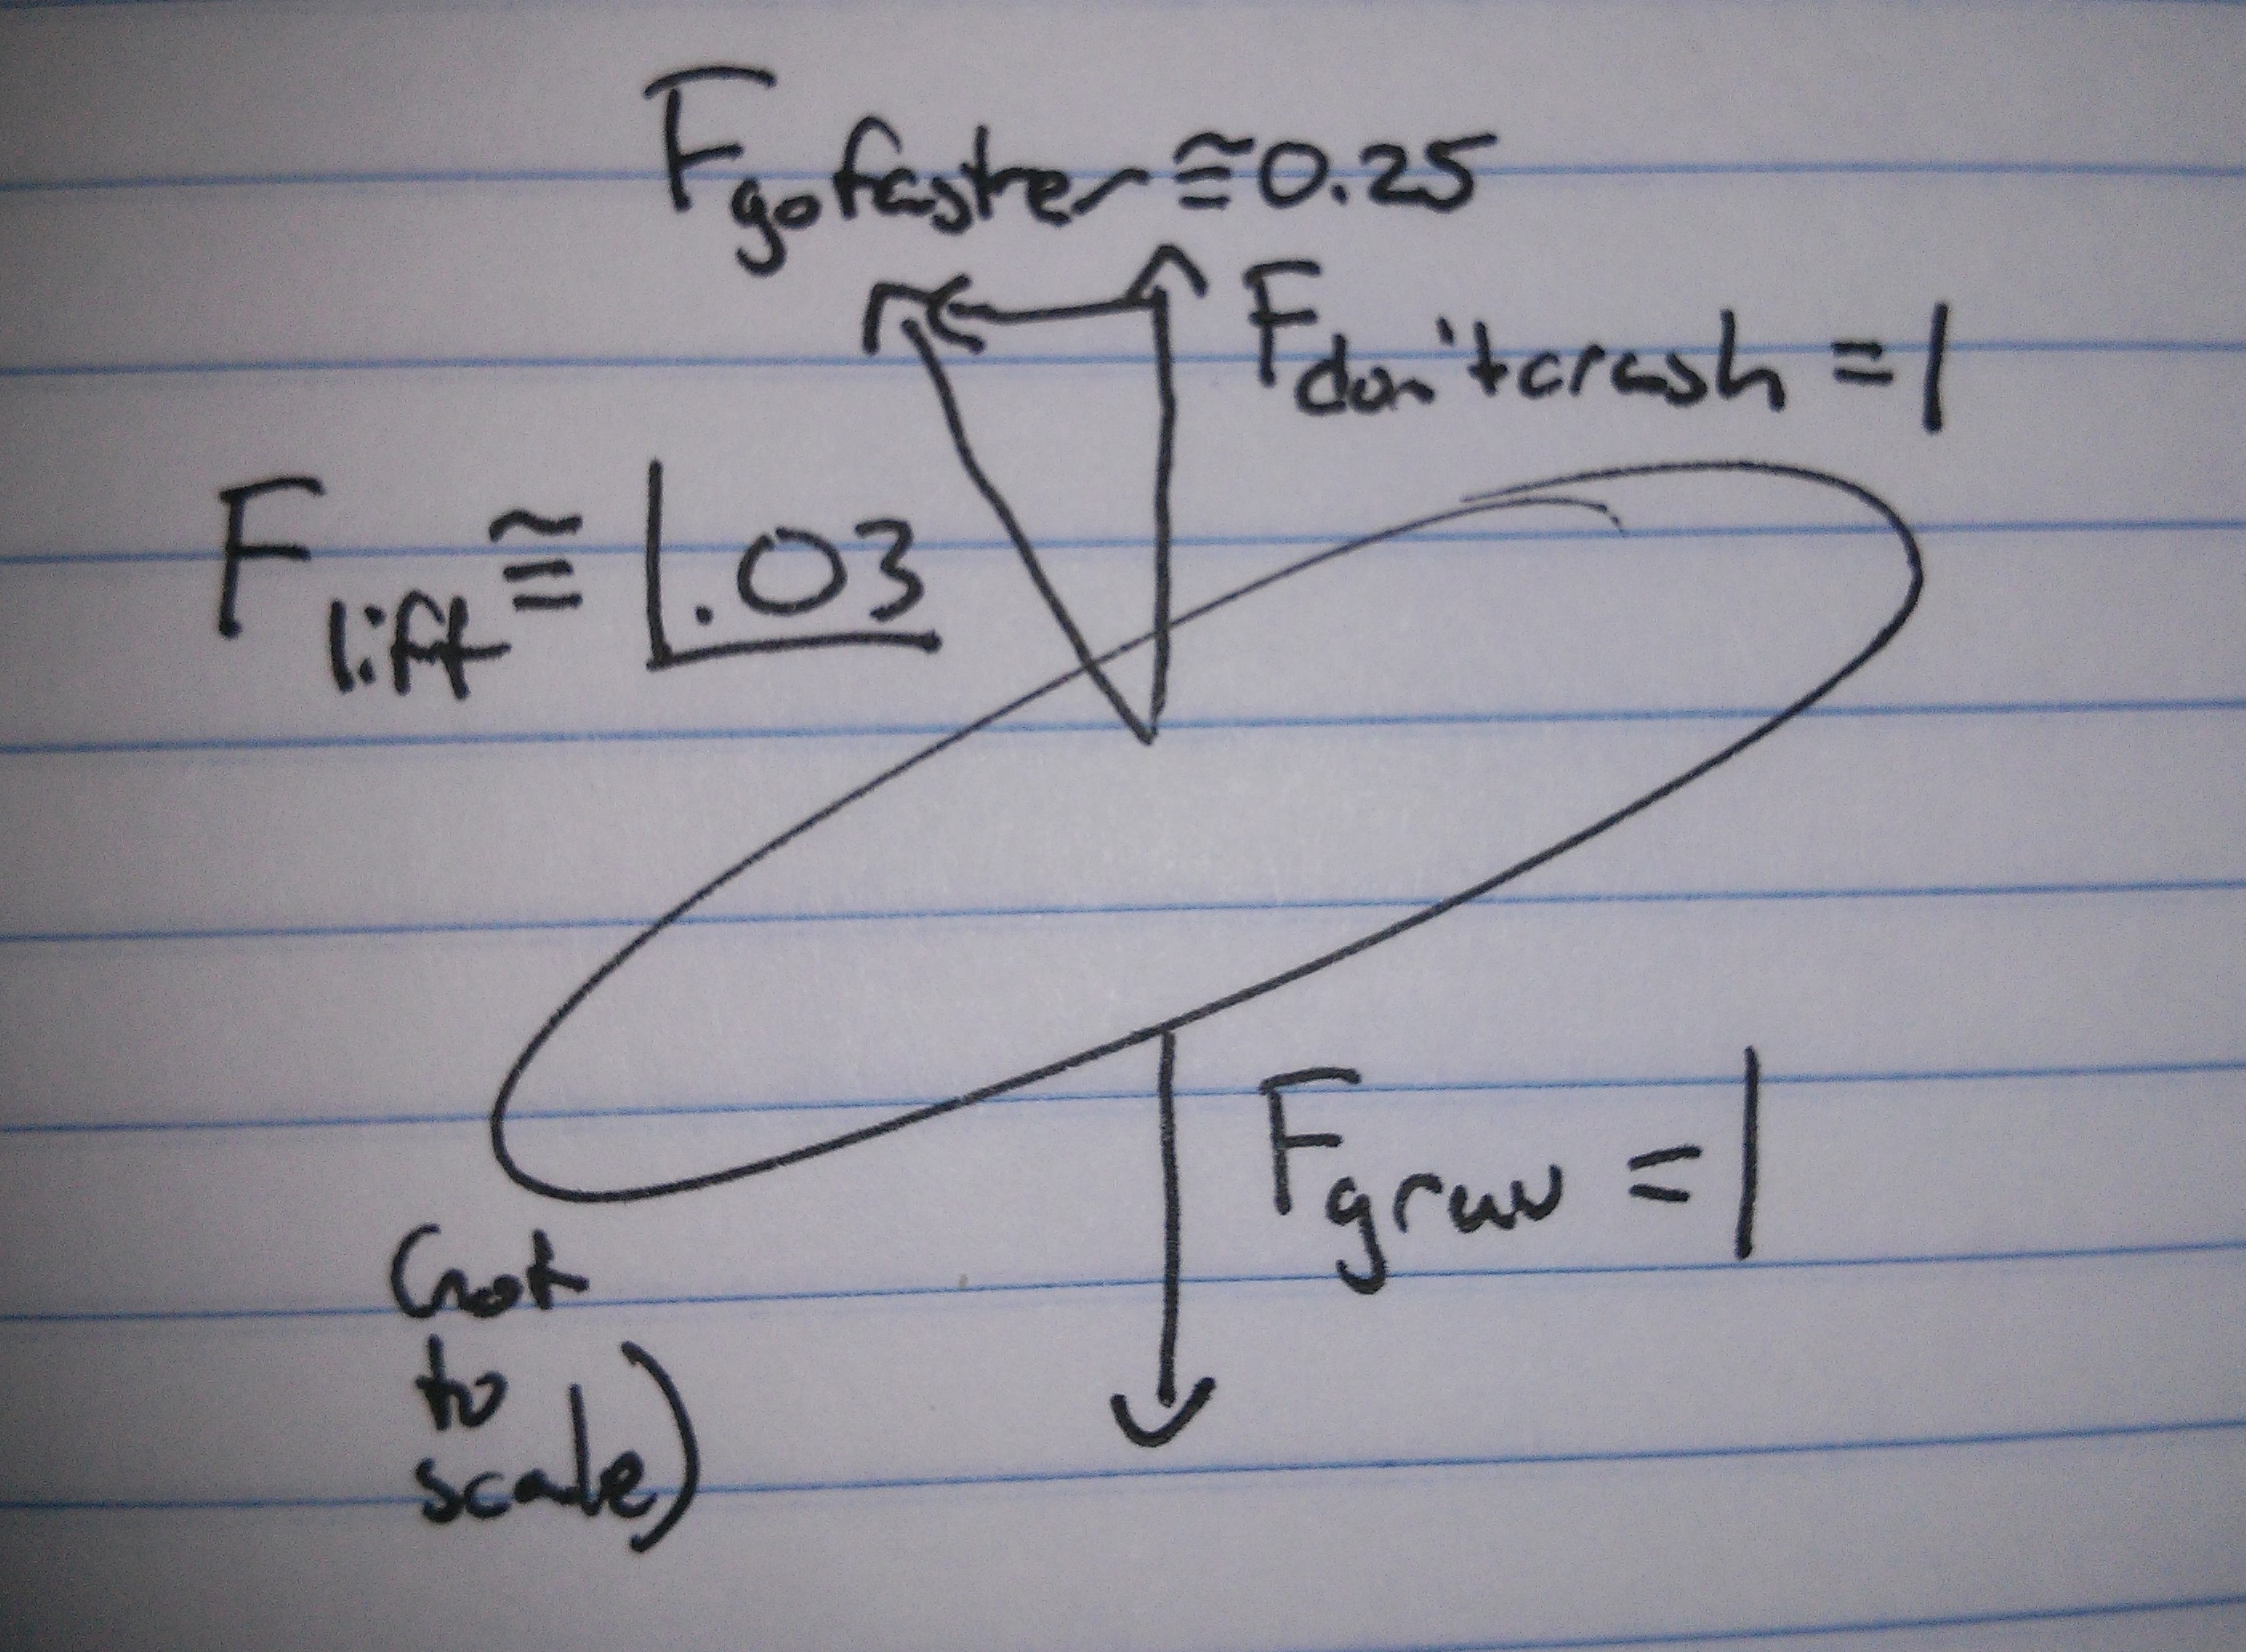 F go faster ≅ 0.25
F don't crash = 1
F lift ≅ 1.03
F grav = 1
(not
to
scale)